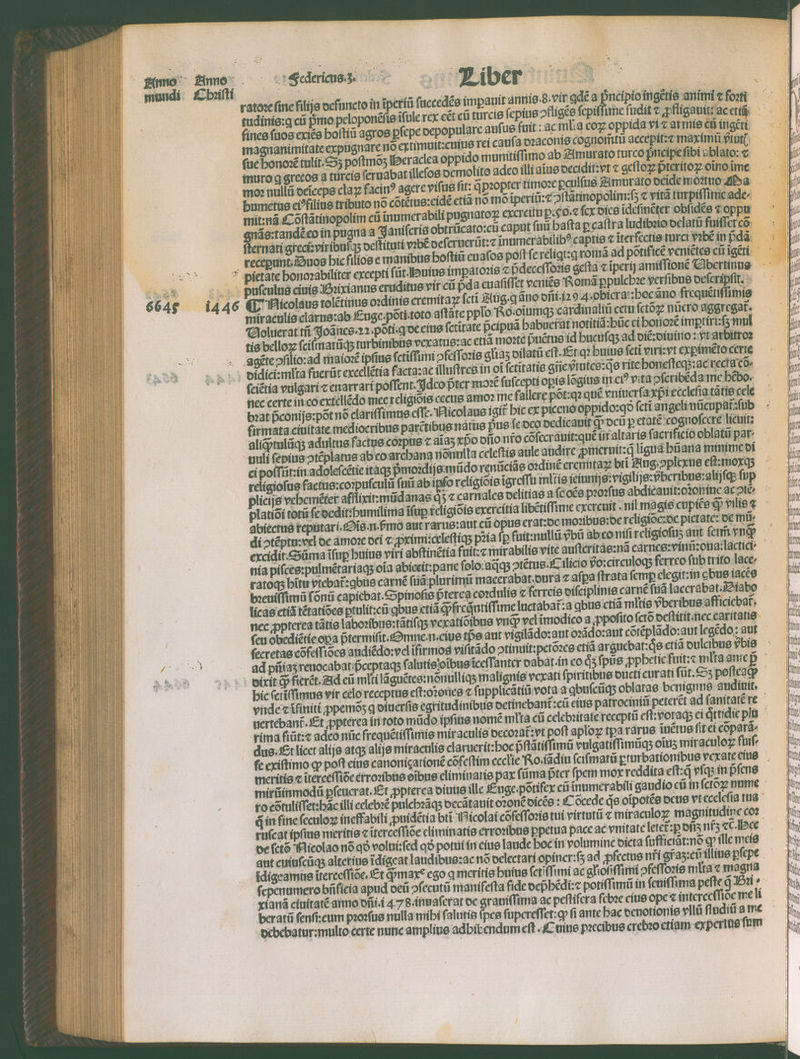 Anno mundi Anno Christi Federicus.3. Liber
ratore sine filijs defuncto in īperiū succedēs impauit annis.8. vir qdē a p̄ncipio ingētis animi ⁊ forti
tudinis: q cū p̄mo peloponēsis īsule rex eēt cū turcis sepius ꝯfligēs sepissime fudit ⁊ ꝓfligauit: ac etiā
fines suos exiēs hostiū agros p̄sepe depopulare ausus fuit: ac ml̓a eoꝝ oppida vi ⁊ armis cū ingēti
magnanimitate expugnare nō extimuit: cuius rei causa draconis cognom̄tū accepit: ⁊ maximū
sue honorē tulit. Sꝫ postmoꝫ Heraclea oppido munitissimo ab Amurato turco p̄ncipe sibi oblato: ⁊
muro q grecos a turcis seruabat illesos demolito adeo illi aīus decidit: vt ⁊ gestoꝝ p̄teritoꝝ oīno īme
mor nullū deīceps claꝝ facinꝰ agere visus sit: qꝓpter timore ꝑculsus Amurato deīde mortuo Ma
humetus eiꝰ filius tributo nō cōtētus: eidē etiā nō mō īperiū: ⁊ ꝯstātinopolim: sꝫ ⁊ vitā turpissime ade-
mit: nā Cōstātinopolim cū inumerabili pugnatoꝝ exercitu ⁊ fex dies īdesinēter obsidēs ⁊ oppu
gnās: tandē eo in pugna a Janiseris obtrūcato: eū caput suū hasta ꝑ castra ludibrio delatū fuisset cō
sternati greci: viribusqꝫ destituti vrbē deseruerūt: ⁊ inumerabilibꝰ captis ⁊ īterfectis turci vrbē in p̄dā
receperunt. Duos hic filios e manibus hostiū euasos post se reliqt: q romā ad pōtificē veniētes cū īgēti
pietate honorabiliter excepti sūt. Huius impatoris ⁊ p̄decessoris gesta ⁊ īperij amissionē Ubertinus
pusculus ciuis Brixianus eruditus vir cū p̄da euasisset veniēs Romā ꝑpulchre versibus descripsit.
6645 1446 ¶ Nicolaus tolētinus ordinis eremitaꝝ scti Aug. q āno dn̄i.1294. obiera: hoc āno frequētissimis
miraculis clarus: ab Euge. pōti. toto astāte pplo Ro. oiumqꝫ cardinaliū cetu sctoꝝ nūero aggregat̄.
Uoluerat tn̄ Joānes.22. pōti. q de eius sctitate p̄cipuā habuerat notitiā: hūc ei honorē imptiri: sꝫ mul
tis belloꝝ scismatūqꝫ turbinibus vexatus: ac etiā morte p̄uētus id hucusqꝫ ad diē: diuino: vt arbitror
agēte ꝯsilio: ad maiorē ipsius sctissimi ꝯfessoris gl̓iaꝫ dilatū est. Et qꝛ huius scti viri: vt exꝑimēto certe
didici: ml̓ta fuerūt excellētia facta: ac illustres in oī sctitatis gn̄e v̓tutes: qs rite honesteqꝫ: ac recta cō-
sciētia vulgari ⁊ enarrari possent. Ideo p̄ter morē suscepti opis lōgius in eiꝰ vita ꝯscribēda me hēbo.
nec certe in eo extollēdo mee religiōis cecus amor me fallere pōt: qꝛ quē vniuersa xp̄i ecclesia tātis cele
brat p̄conijs: pōt nō clarissimus esse. Nicolaus igit̄ hic ex piceno oppido: qd scti angeli nūcupat̄: sub
firmata ciuitate mediocribus parētibus natus p̄us se deo dedicauit q deū ꝑ etatē cognoscere licuit:
aliqtulūqꝫ adultus factus corpus ⁊ aīaꝫ xp̄o dn̄o nr̄o cōsecrauit: quē in altaris sacrificio oblatū par-
uuli sepius ꝯtēplatus ab eo archana nōnulla celestia aule audire ꝓmeruit: q linguā hūana minime di
ci possūt: in adolescētie itaqꝫ p̄mordijs mūdo renūciās ordinē eremitaꝝ bti Aug. ꝯplexus est: moxqꝫ
religiosus factus: corpusculū suū ab ipso religiōis īgressu ml̓tis ieiunijs: vigilijs: v̓beribus: alijsqꝫ sup
plicijs vehemēter afflixit: mūdanas qꝫ ⁊ carnales delitias a se oēs prorsus abdicauit: orōnine ac ꝯtē-
platiōi totū se dedit: humilima īsup religiōis exercitia libētissime exercuit. nil magis cupiēs q vilis ⁊
abiectus reputari. Ois. n. s̄mo aut rarus: aut cū opus erat: de moribus: de religiōe: de pietate: de mū-
di ꝯtēptu: vel de amore dei ⁊ ꝓximi: celestiqꝫ pr̄ia sp fuit: nullū v̓bū ab eo nisi religiosuꝫ aut sctm̄ vnq
excidit. Sūma īsup huius viri abstinētia fuit: ⁊ mirabilis vite austeritas: nā carnes: vinū: oua: lactici-
nia pisces: pulmētariaqꝫ oīa abiecit: pane solo: aqqꝫ ꝯtētus. Cilicio vo: circuloqꝫ ferreo sub trito lace-
ratoqꝫ hītu vtebat̄: qbus carnē suā plurimū macerabat. dura ⁊ aspa strata semp elegit: in qbus iacēs
breuissimū sōnū capiebat. Spinosis p̄terea cordulis ⁊ ferreis disciplinis carnē suā lacerabat. Diabo
licas etiā tētatiōes ꝑtulit: cū qbus etiā qfrequtissime luctabat̄: a qbus etiā ml̓tis v̓beribus afficiebat̄,
nec ꝓpterea tātis laboribus: tātisqꝫ vexatiōibus vnq vel īmodico a ꝓposito scto destitit. nec caritatis
seu obediētie opa p̄termisit. Omne. n. eius tp̄s aut vigilādo: aut orādo: aut cōtēplādo: aut legēdo: aut
secretas cōfessiōes audiēdo: vel īfirmos visitādo ꝯtinuit: pctōres etiā arguebat: qs etiā dulcibus v̓bis
ad pn̄iaꝫ reuocabat: p̄ceptaqꝫ salutis oībus īcessanter dabat. in eo qꝫ sp̄us ꝓphetic fuit: ⁊ ml̓ta anteq
dixit q fierēt. Ad eū ml̓ti lāguētes: nōnulliqꝫ malignis vexati spiritibus ducti curati sūt. Sꝫ postea q
hic sctissimus vir celo receptus est: orōnes ⁊ supplicātiū vota a qbuscūqꝫ oblatas benignus audiuit,
vnde ⁊ īfiniti ꝓpemōꝫ q diuersis egritudinibus detinebant̄: cū eius patrociniū peterēt ad sanitatē re
uertebant̄. Et ꝓpterea in toto mūdo ipsius nomē ml̓ta cū celebritate receptū est: votaqꝫ ei qttidie plu
rima fiūt: ⁊ adeo nūc frequētissimis miraculis decorat̄: vt post aploꝝ tp̄a rarus īuētus sit ei cōpara-
dus. Et licet alijs atqꝫ alijs miraculis claruerit: hoc p̄stātissimū vulgatissimūqꝫ oīuꝫ miraculoꝝ fuis-
se existimo q post eius canoniçationē cōfestim eccl̓ie Ro. iādiu scismatū ꝑturbationibus vexate eius
meritis ⁊ īterceſſiōe erroribus oībus eliminatis pax sūma p̄ter spem mox reddita est: q vsqꝫ in p̄sens
mirūinmodū pseuerat. Et ꝓpterea diuus ille Euge. pōtifex cū inumerabili gaudio cū in sctoꝝ nume
ro cōtulisset: hāc illi celebrē pulchrāqꝫ decātauit orōnē dicēs: Cōcede qs oīpotēs deus vt ecclesia tua
q in fine seculoꝝ ineffabili ꝓuidētia bti Nicolai cōfessoris tui virtutū ⁊ miraculoꝝ magnitudine cor
ruscat ipsius meritis ⁊ īterceſſiōe eliminatis erroribus ꝑpetua pace ac vnitate letet̄: ꝑ dn̄ꝫ nr̄ꝫ ⁊c̄. Hec
de scto Nicolao nō qd volui: sed qd potui in eius laude hoc in volumine dicta sufficiāt: nō q ille meis
aut cuiuscūqꝫ alterius īdigeat laudibus: ac nō delectari opiner: sꝫ ad ꝓfectus nr̄i gr̄aꝫ: cū illius ꝑsepe
īdigeamus īterceſſiōe. Et qmaxᵉ ego q meritis huius sctissimi ac gl̓iosissimi ꝯfessoris ml̓ta ⁊ magna
sepenumero bn̄ficia apud deū ꝯsecutū manifesta fide dep̄hēdi: ⁊ potissimū in seuissima peste q Bri-
xianā ciuitatē anno dn̄i.1478. inuaserat de grauissima ac pestifera febre eius ope ⁊ intercessiōe me li
beratū sensi: cum prorsus nulla mihi salutis spes superesset: q si ante hac deuotionis vllū studiū a me
debebatur: multo certe nunc amplius adhibendum est. Cuius precibus crebro etiam expertus sum